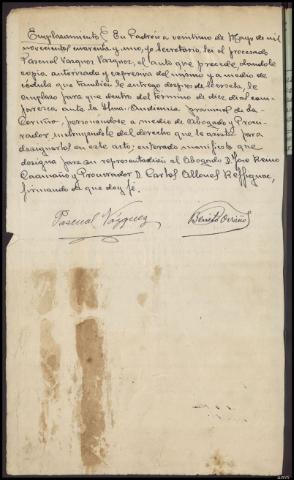 Emplazamiento En Padrón a veintiuno de Mayo de mil
novecientos cuarenta y uno, yo Secretario, leí al procesado
Pascual Vazquez Vazquez, el auto que precede dandole
copia autorizada y expresiva del mismo y a medio de
cédula que tambien le entrego despues de leerscla, le
emplazo para que dentro del termino de diez dias com-
parezca ante la Ilma. Audiencia provincial de La
Coruña, personandose a medio de Abogado y Procu-
rador, instruyendole del derecho que le asiste para
designarlos en este acto; enterado manifestó que
designa para su representación al Abogado D. Jose Reino
Caamaño y Procurador D. Carlos
firmando de que doy fé.
Pascual Vazquez
Benito